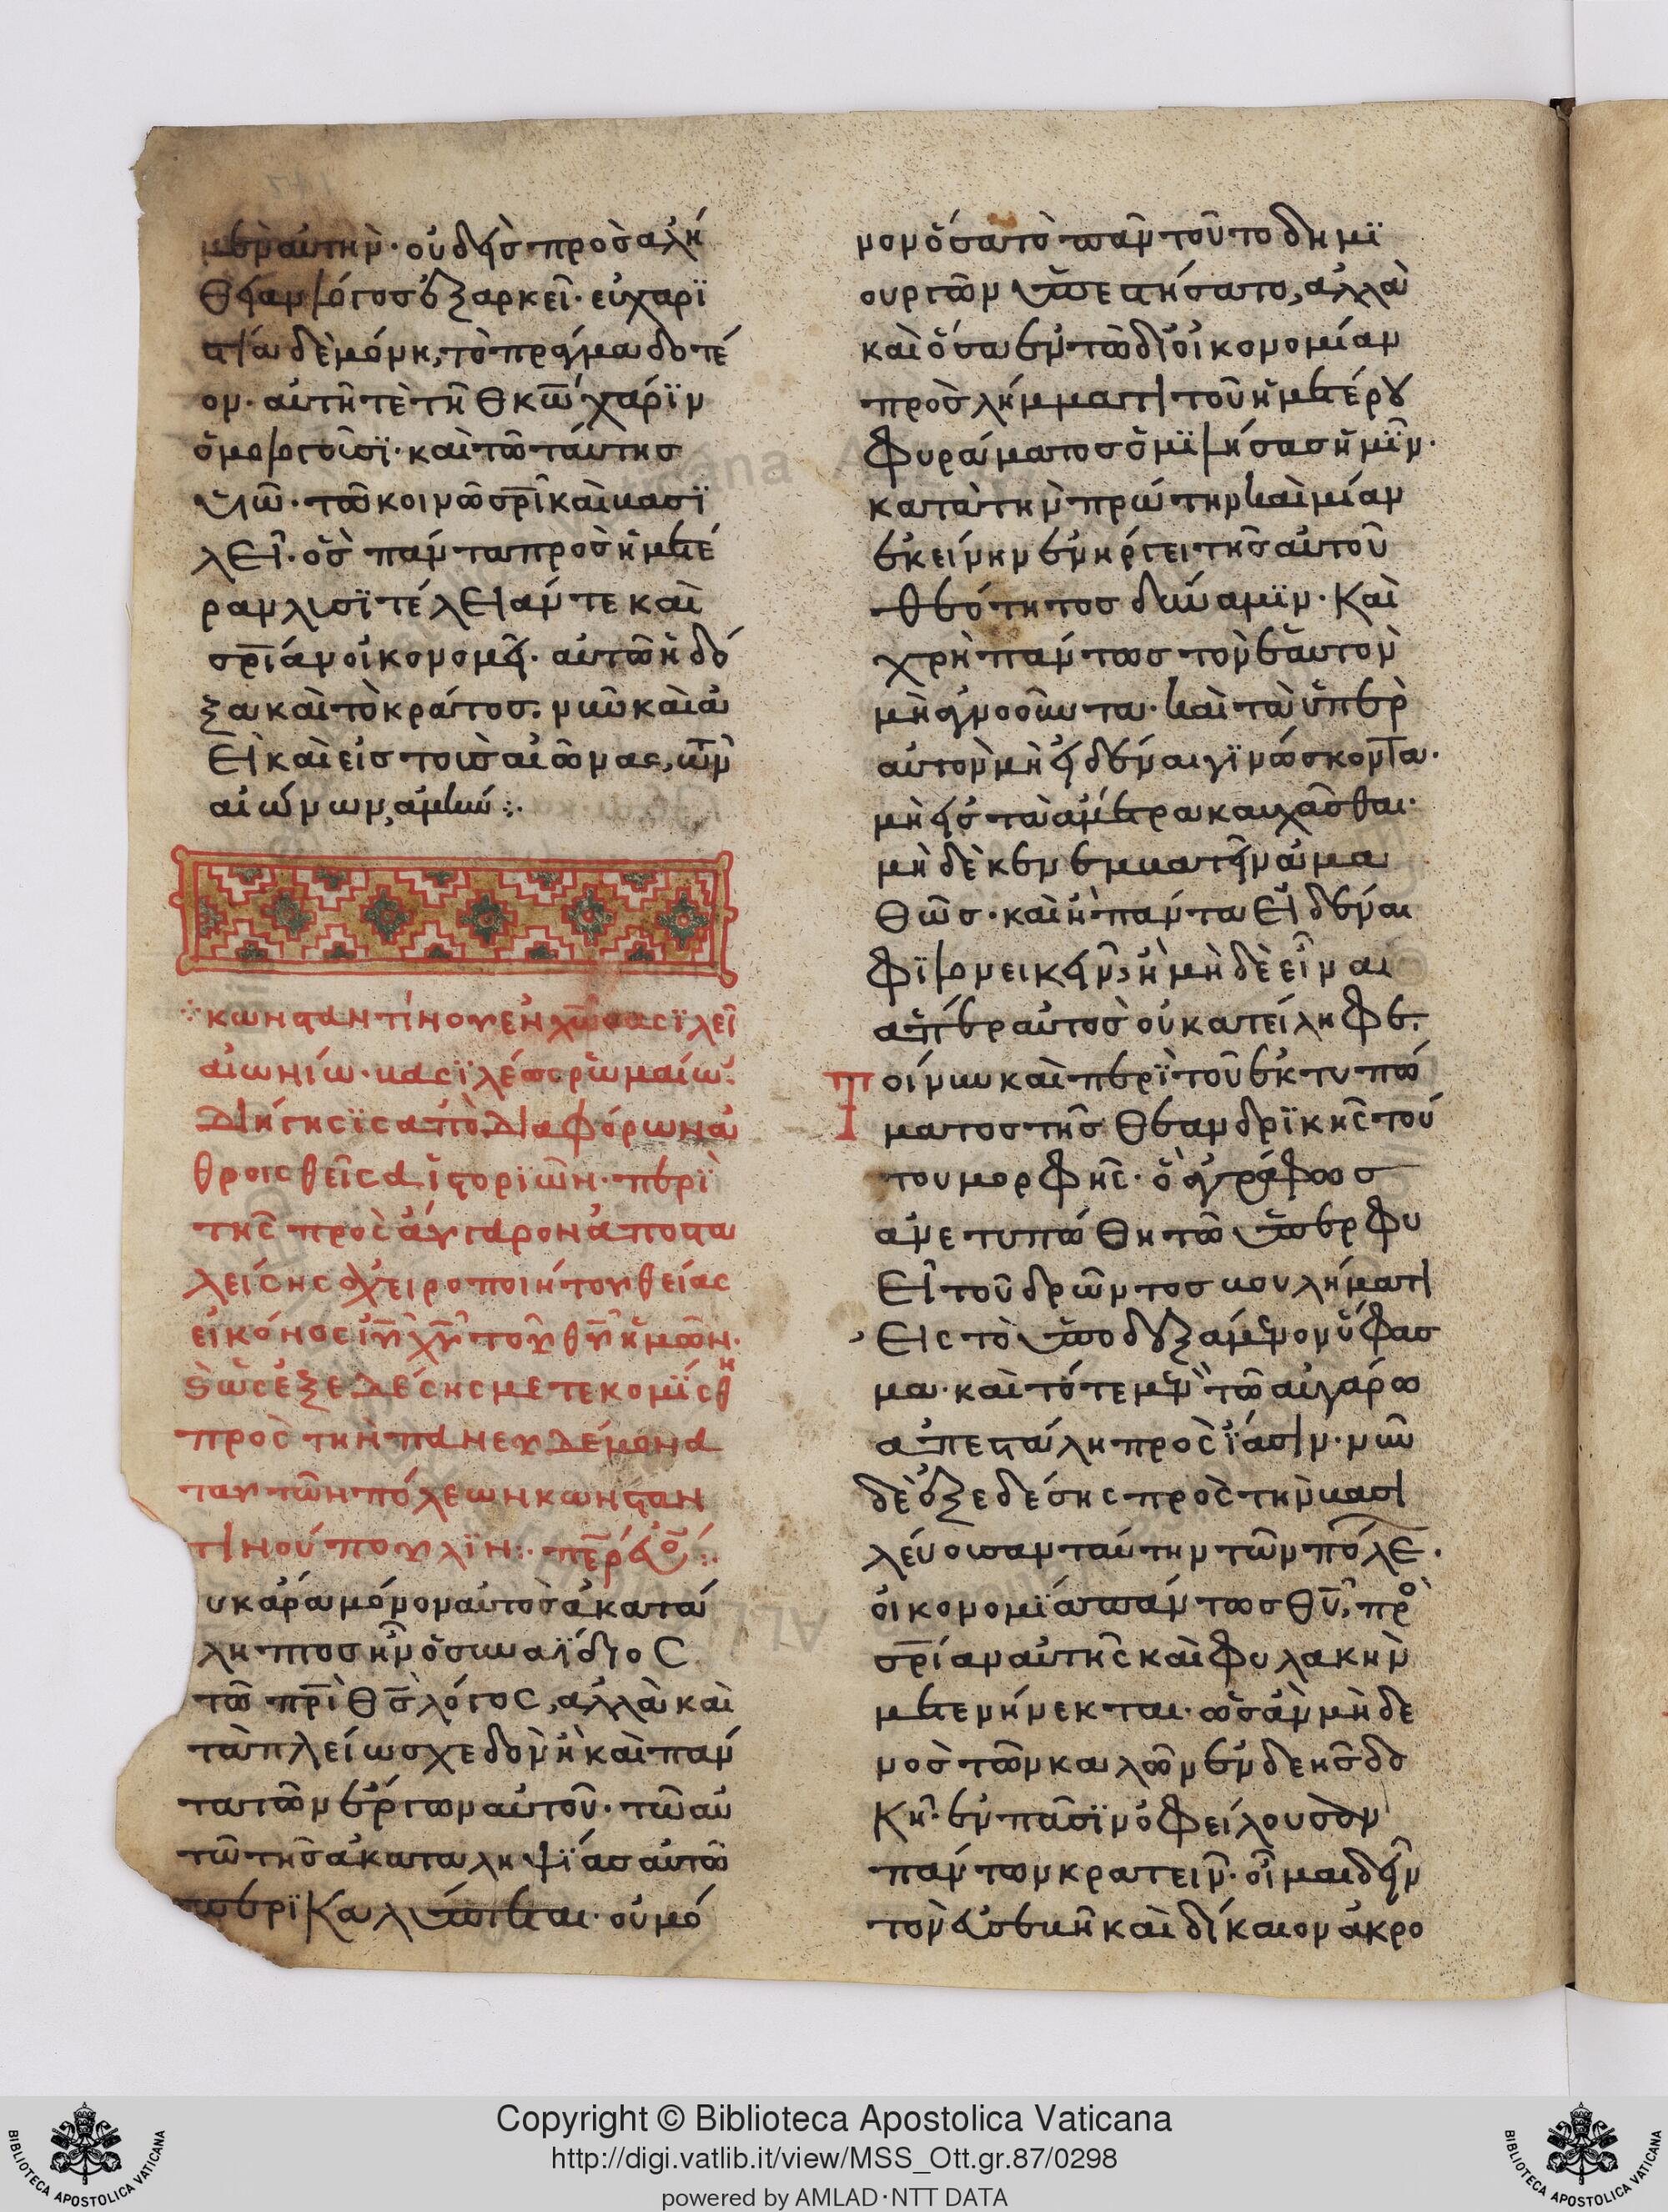 μὲν αὐτὴν· οὐδεὶς πρὸς ἀλή
θειαν λόγος ἐξαρκεῖ· εὐχαρϊ
στία δὲ μόνη, τὸ πράγμα δοτέ
ον· αὐτῆ τὲ τῆ θκω χάρϊν
ὁμολογοῦσϊ· καὶ τῶ ταύτης
υἱῶ· τῶ κοινῶ σρι καὶ βασϊ
λεῖ· ὃς πάντα πρὸς ἡμετέ
ραν λυσϊτέλειάν τε καὶ
σριαν οἰκονομεῖ· αὐτῶ ἡ δό
ξα καὶ τὸ κράτος· νῦν καὶ ἀ
εὶ καὶ εἰς τοὺς αἰῶνας, τῶν
αἰώνων, ἀμήν :·
κωνσταντίνου ἐν χω βασϊλεῖ
αἰωνίω· βασϊλέως ῥωμαίων·
Διήγησϊς ἀπὸ διαφόρων ἀ
θροισθεῖσα ἱστορϊῶν· περϊ
τῆς πρὸς ἄυγαρον ἀποστα
λείσης ἀχειροποιήτου θείας
εἰκόνος ιυ χυ τοῦ θυ ἡμῶν·
ϛ ὡς ἐξ ἐδέσης μετεκομίσθη
πρὸς τὴν πανευδέμονα
ταυτων πόλεων κωνσταν
τινούπουλϊν :·
υκ ἄρα μόνον αὐτὸς ἀκατά
ληπτος ἦν ὁ συναΐδιος
τῶ πρι θς λόγος, ἀλλὰ καὶ
τὰ πλείω σχεδὸν ἢ καὶ πάν
τα τῶν ἔργων αὐτοῦ· τῶ αὐ
τῶ τῆς ἀκαταληψίας αὐτῶ
περϊκαλύπτεται· οὐ μό
νον ὅσα τὸ πᾶν τοῦτο δημϊ
ουργῶν ὑπεστήσατο, ἀλλὰ
καὶ ὅσα ἐν τῶ δι οἰκονομίαν
προσλήμματι τοῦ ἡμετέρου
φυράματος ὁμϊλήσας ἡμῖν·
κατὰ τὴν πρώτην καὶ μίαν
ἐκείνην ἐνήργει τῆς αὐτοῦ
θεότητος δύναμϊν· Καὶ
χρὴ πάντως τὸν ἑαυτὸν
μὴ ἀγνοοῦντα· καὶ τὰ ὑπὲρ
αὐτὸν μὴ εἰδέναι γϊνώσκοντα·
μὴ εἰς τὰ ἄμετρα καυχᾶσθαι·
μὴ δὲ κενεμβατεῖν ἀμα
θῶς· καὶ ἢ πάντα εἰδέναι
φϊλονεικεῖν, ἢ μὴ δὲ εἶναι
ἅπερ αὐτὸς οὐ κατείληφε·
Τοίνυν καὶ περϊ τοῦ ἐκτυπώ
ματος τῆς θεανδρϊκῆς τού
του μορφῆς· ὃ ἀγράφως
ἀνετυπώθη τῶ ὑπερφυ
εῖ τοῦ δρῶντος βουλήματι
εἰς τὸ ὑποδεξάμενον ὕφας
μα· καὶ τότε μὲν τῶ αὐγάρω
ἀπεστάλη πρὸς ἴασιν· νῦν
δὲ ἐξ ἐδέσης πρὸς τὴν βασι
λεύουσαν ταύτην τῶν πόλε·
οἰκονομίαι πάντως θυ, πρὸ
σριαν αὐτῆς καὶ φυλακὴν
μετενήνεκται· ὡς ἂν μὴ δε
νὸς τῶν καλῶν ἐνδεὴς δο
κῆ· ἐν πᾶσϊν ὀφείλουσαν
πάντων κρατεῖν· οἶμαι δεῖν
τὸν εὐσεβῆ καὶ δίκαιον ἀκρο
Copyright © Biblioteca Apostolica Vaticana
http://digi.vatlib.it/view/MSS_Ott.gr.87/0298
powered by AMLAD·NTT DATA
BIBLIOTECA APOSTOLICA VATICANA
BIBLIOTECA APOSTOLICA VATICANA